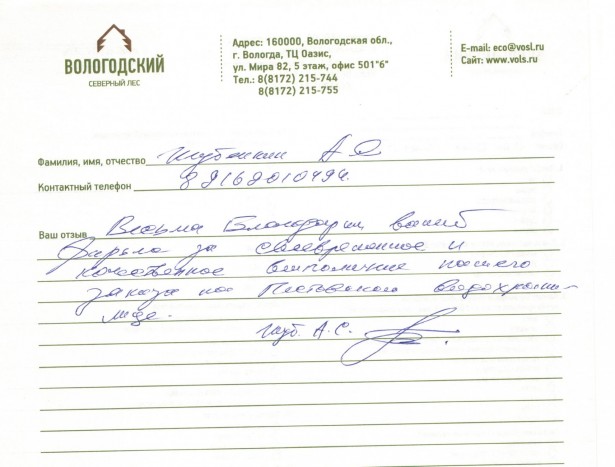 ВОЛОГОДСКИЙ
СЕВЕРНЫЙ ЛЕС
Адрес: 160000, Вологодская обл.,
г. Вологда, ТЦ Оазис,
ул. Мира 82, 5 этаж, офис 501"б"
Тел.: 8(8172) 215-744
8(8172) 215-755
E-mail: eco@vosl.ru
Сайт: www.vols.ru
Фамилия, имя, отчество
Контактный телефон 89162010494
Ваш отзыв Весьма благодарен вашей
фирме за своевременное и
качественное выполнение нашего
заказа на водохрани-
лище.
А.С.